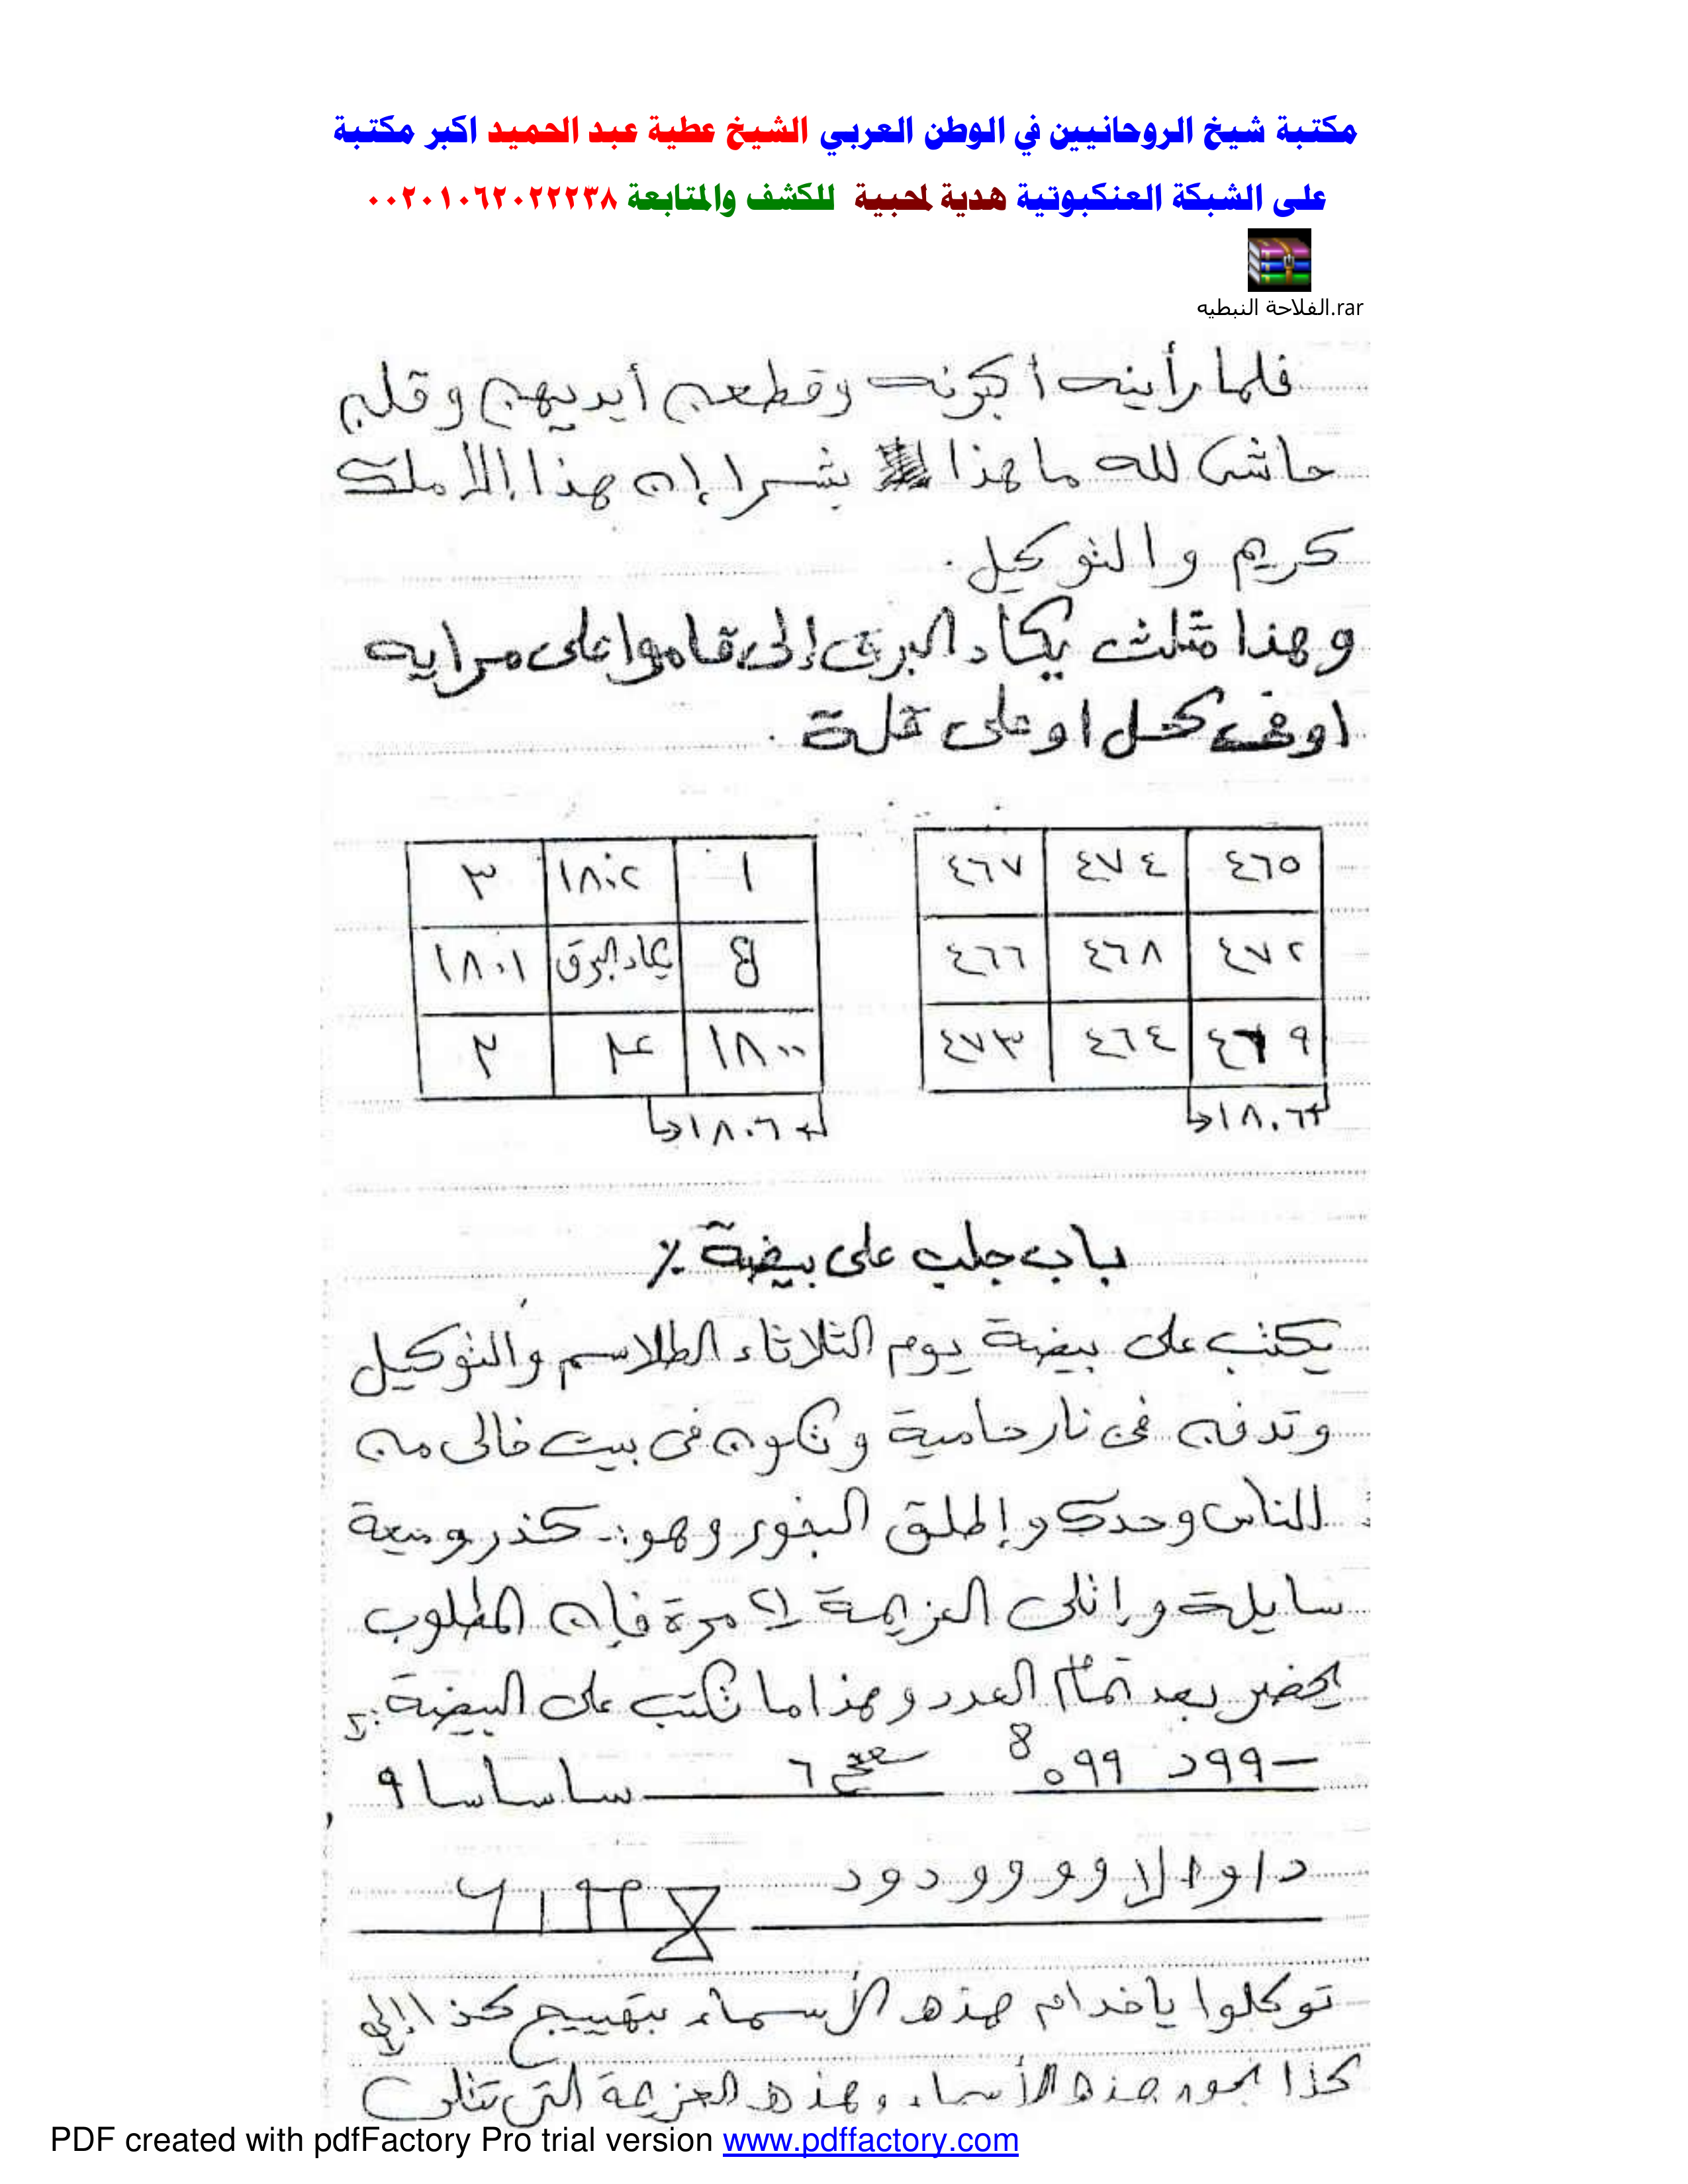 مكتبة شيخ الروحانيين في الوطن العربي الشيخ عطية عبد الحميد اكبر مكتبة
على الشبكة العنكبوتية هدية لمحبية للكشف والمتابعة ٠٠٢٠١٠٦٢٠٢٢٢٣٨
الفلاحة النبطيه.rar
فلما رأينه أكبرنه وقطعن أيديهن وقلن
حاش لله ما هذا بشرا إن هذا إلا ملك
كريم والتوكيل.
وهذا مثلث يكاد البرق إلى قاموا على مرايه
او في كحل او على فلة.
٤٦٥ ٤٧٤ ٤٦٧
٤٧٢ ٤٦٨ ٤٦٦
٤٦٩ ٤٦٤ ٤٧٣
١٨٠٦
١ ١٨٠٢ ٣
يكاد البرق ١٨٠١
١٨٠٠ ٤ ٢
١٨٠٦
باب جلب على بيضة
يكتب على بيضة يوم الثلاثاء الطلاسم والتوكيل
وتدفن في نار حامية وتكون في بيت خالى من
الناس وحدك وإطلق البخور وهو:- كندر وميعة
سايلة وإتلى العزيمة ٧ مرة فإن المطلوب
يحضر بعد تمام العدد وهذا ما تكتب على البيضة:
٩٩د ٩٩٥ 8 ٦ ساساسا ٩
داوالا وووودود
توكلوا ياخدام هذه الأسماء بتهييج كذا إلى
كذا بحق هذه الأسماء وهذه العزيمة التى تتلى
PDF created with pdfFactory Pro trial version www.pdffactory.com